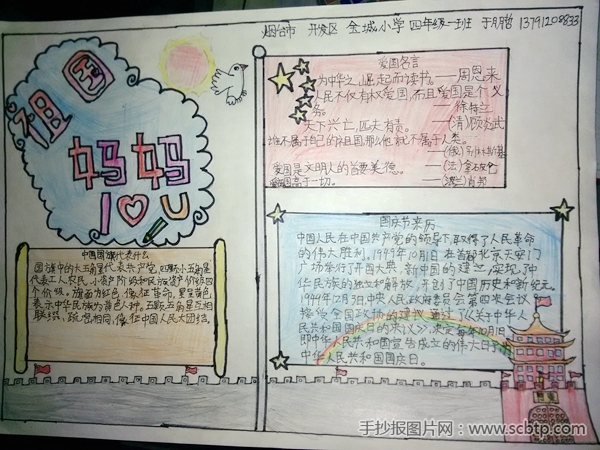 烟台市 开发区 金城小学 四年级一班 于月皓 13791208833
祖国
妈妈
I U
爱国名言
为中华之崛起而读书。——周恩来
人民不仅有权爱国,而且爱国是个义
务。——徐特立
天下兴亡,匹夫有责。——(清)顾炎武
谁不属于自己的祖国,那么他就不属于人类。
——(俄)别林斯基
爱国是文明人的首要美德。——(法)拿破仑
爱国高于一切。——(波兰)肖邦
中国国旗代表什么
国旗中的大五角星代表共产党,四颗小五角星
代表工人,农民,小资产阶级和民族资产阶级四
个阶级。旗面为红色,像征革命,星呈黄色,
表示中华民族为黄色人种。五颗五角星互相
联缀,疏密相间,像征中国人民大团结。
国庆节来历
中国人民在中国共产党的领导下,取得了人民革命
的伟大胜利。1949年10月1日,在首都北京天安门
广场举行了开国大典,新中国的建立,实现了中
华民族的独立和解放,开创了中国历史和新纪元。
1949年12月3日,中央人民政府委员会第四次会议
接受全国政协的建议,通过了《关于中华人
民共和国国庆日的决议》,决定每年10月1日,
即中华人民共和国宣告成立的伟大日子为
中华人民共和国国庆日。
手抄报图片网—www.scbtp.com